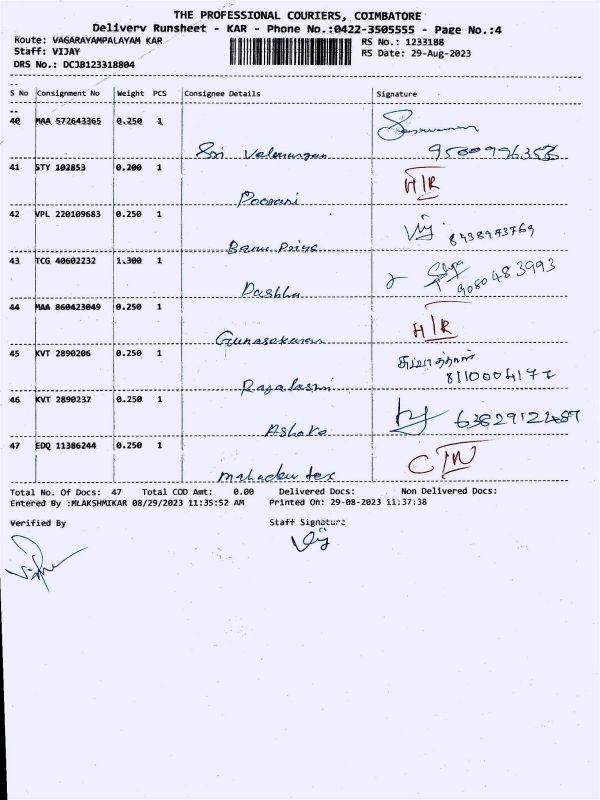 THE PROFESSIONAL COURIERS, COIMBATORE
Delivery Runsheet - KAR - Phone No.:0422-3505555 - Page No.:4
Route: VAGARAYAMPALAYAM KAR RS No.: 1233188
Staff: VIJAY RS Date: 29-Aug-2023
DRS No.: DCJB123318804
S No Consignment No Weight PCS Consignee Details Signature
40 MAA 572643365 0.250 1
Sri Velmurugan
41 STY 102853 0.200 1 H/R
Poorani
42 VPL 220109683 0.250 1 Vij 8438973769
Banu Priya
43 TCG 40602232 1.300 1 9080483993
Dashha
44 MAA 860423049 0.250 1 H/R
Gunasekaran
45 KVT 2890206 0.250 1
Rajalasmi 8110004177
46 KVT 2890237 0.250 1
Ashoke
47 EDQ 11386244 0.250 1 C/N
Mahadev tex
Total No. Of Docs: 47 Total COD Amt: 0.00 Delivered Docs: Non Delivered Docs:
Entered By :MLAKSHMIKAR 08/29/2023 11:35:52 AM Printed On: 29-08-2023 11:37:38
Verified By Staff Signature
Vij